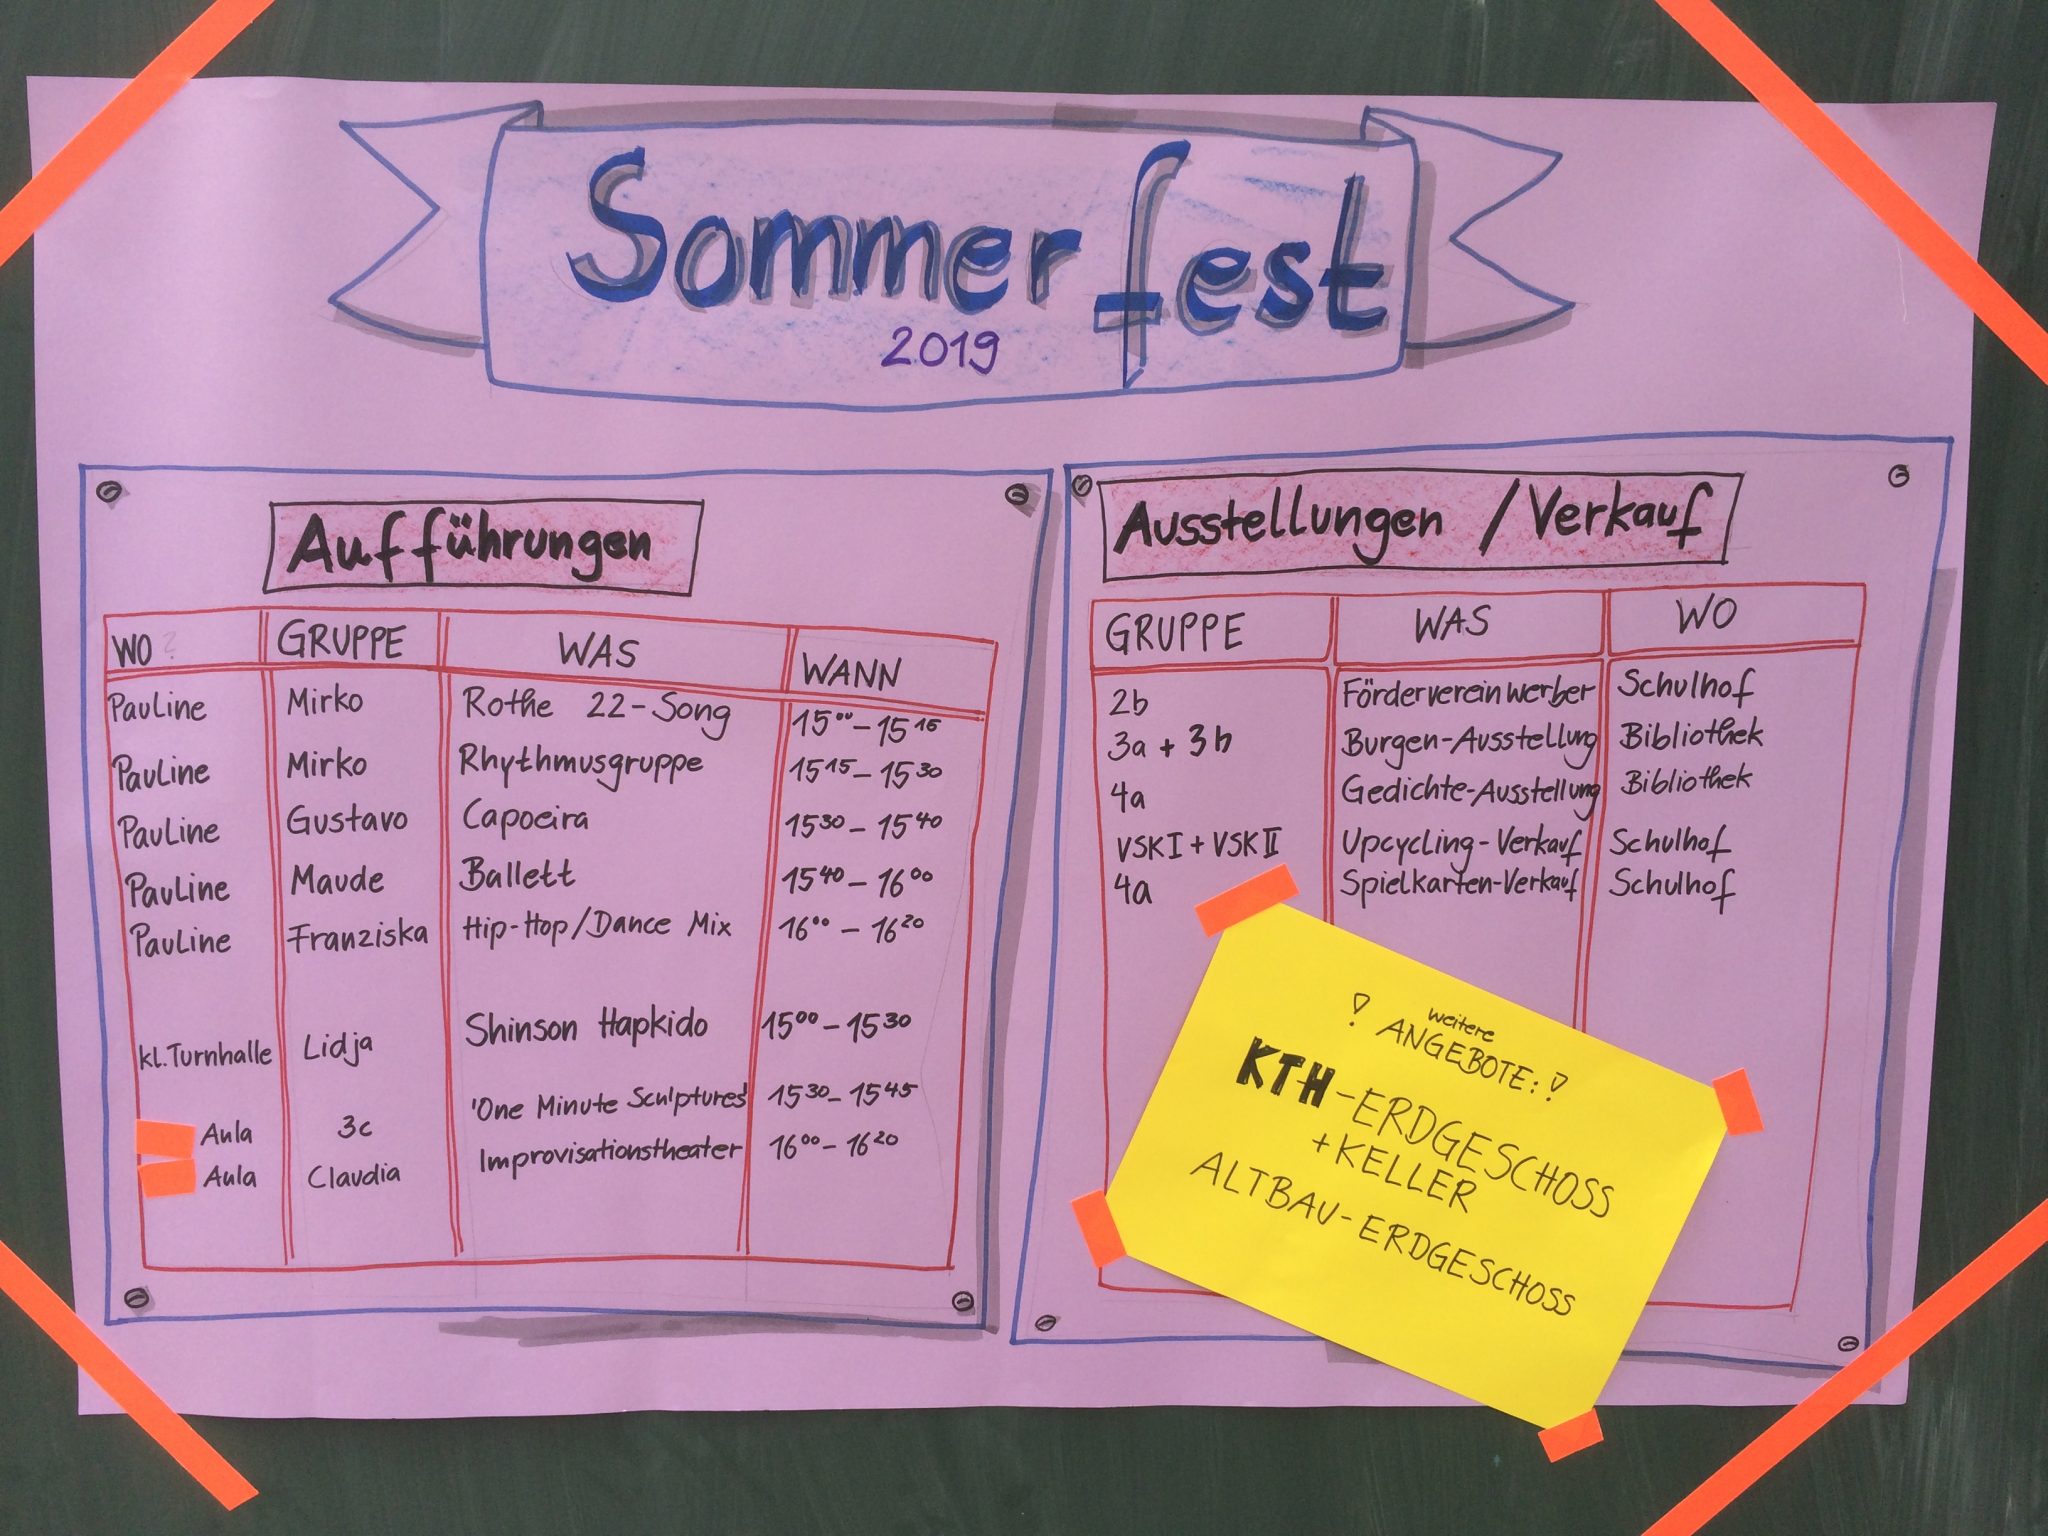 Sommerfest
2019
Aufführungen
WO ? GRUPPE WAS WANN
Pauline Mirko Rothe 22-Song 15⁰⁰ – 15¹⁵
Pauline Mirko Rhythmusgruppe 15¹⁵ – 15³⁰
Pauline Gustavo Capoeira 15³⁰ – 15⁴⁰
Pauline Maude Ballett 15⁴⁰ – 16⁰⁰
Pauline Franziska Hip-Hop/Dance Mix 16⁰⁰ – 16²⁰
kl. Turnhalle Lidja Shinson Hapkido 15⁰⁰ – 15³⁰
Aula 3c 'One Minute Sculptures' 15³⁰ – 15⁴⁵
Aula Claudia Improvisationstheater 16⁰⁰ – 16²⁰
Ausstellungen / Verkauf
GRUPPE WAS WO
2b Förderverein werber Schulhof
3a + 3b Burgen-Ausstellung Bibliothek
4a Gedichte-Ausstellung Bibliothek
VSK I + VSK II Upcycling-Verkauf Schulhof
4a Spielkarten-Verkauf Schulhof
! weitere
ANGEBOTE: !
KTH-ERDGESCHOSS
+ KELLER
ALTBAU-ERDGESCHOSS